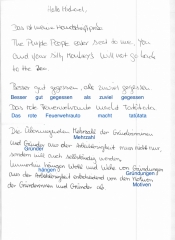 Hallo Michael,
Das ist meine Handschriftprobe
The Purple People eater said to me, You
and your silly Members will not go back
to the Zoo.
Besser gut gegessen, als zuviel gegessen
Besser gut gegessen als zuviel gegessen
Das rote Feuerwehrauto macht tatütata
Das rote Feuerwehrauto macht tatütata
Die überwiegende Mehrzahl der Gründerinnen
Mehrzahl
und Gründer aus der Arbeitslosigkeit nicht nur,
Gründer
sondern will auch selbständig werden.
Immerhin hängen Wohl und Wehe von Gründungen
hängen
Gründungen
aus der Arbeitslosigkeit entscheidend von den Motiven
Motiven
der Gründerinnen und Gründer ab.